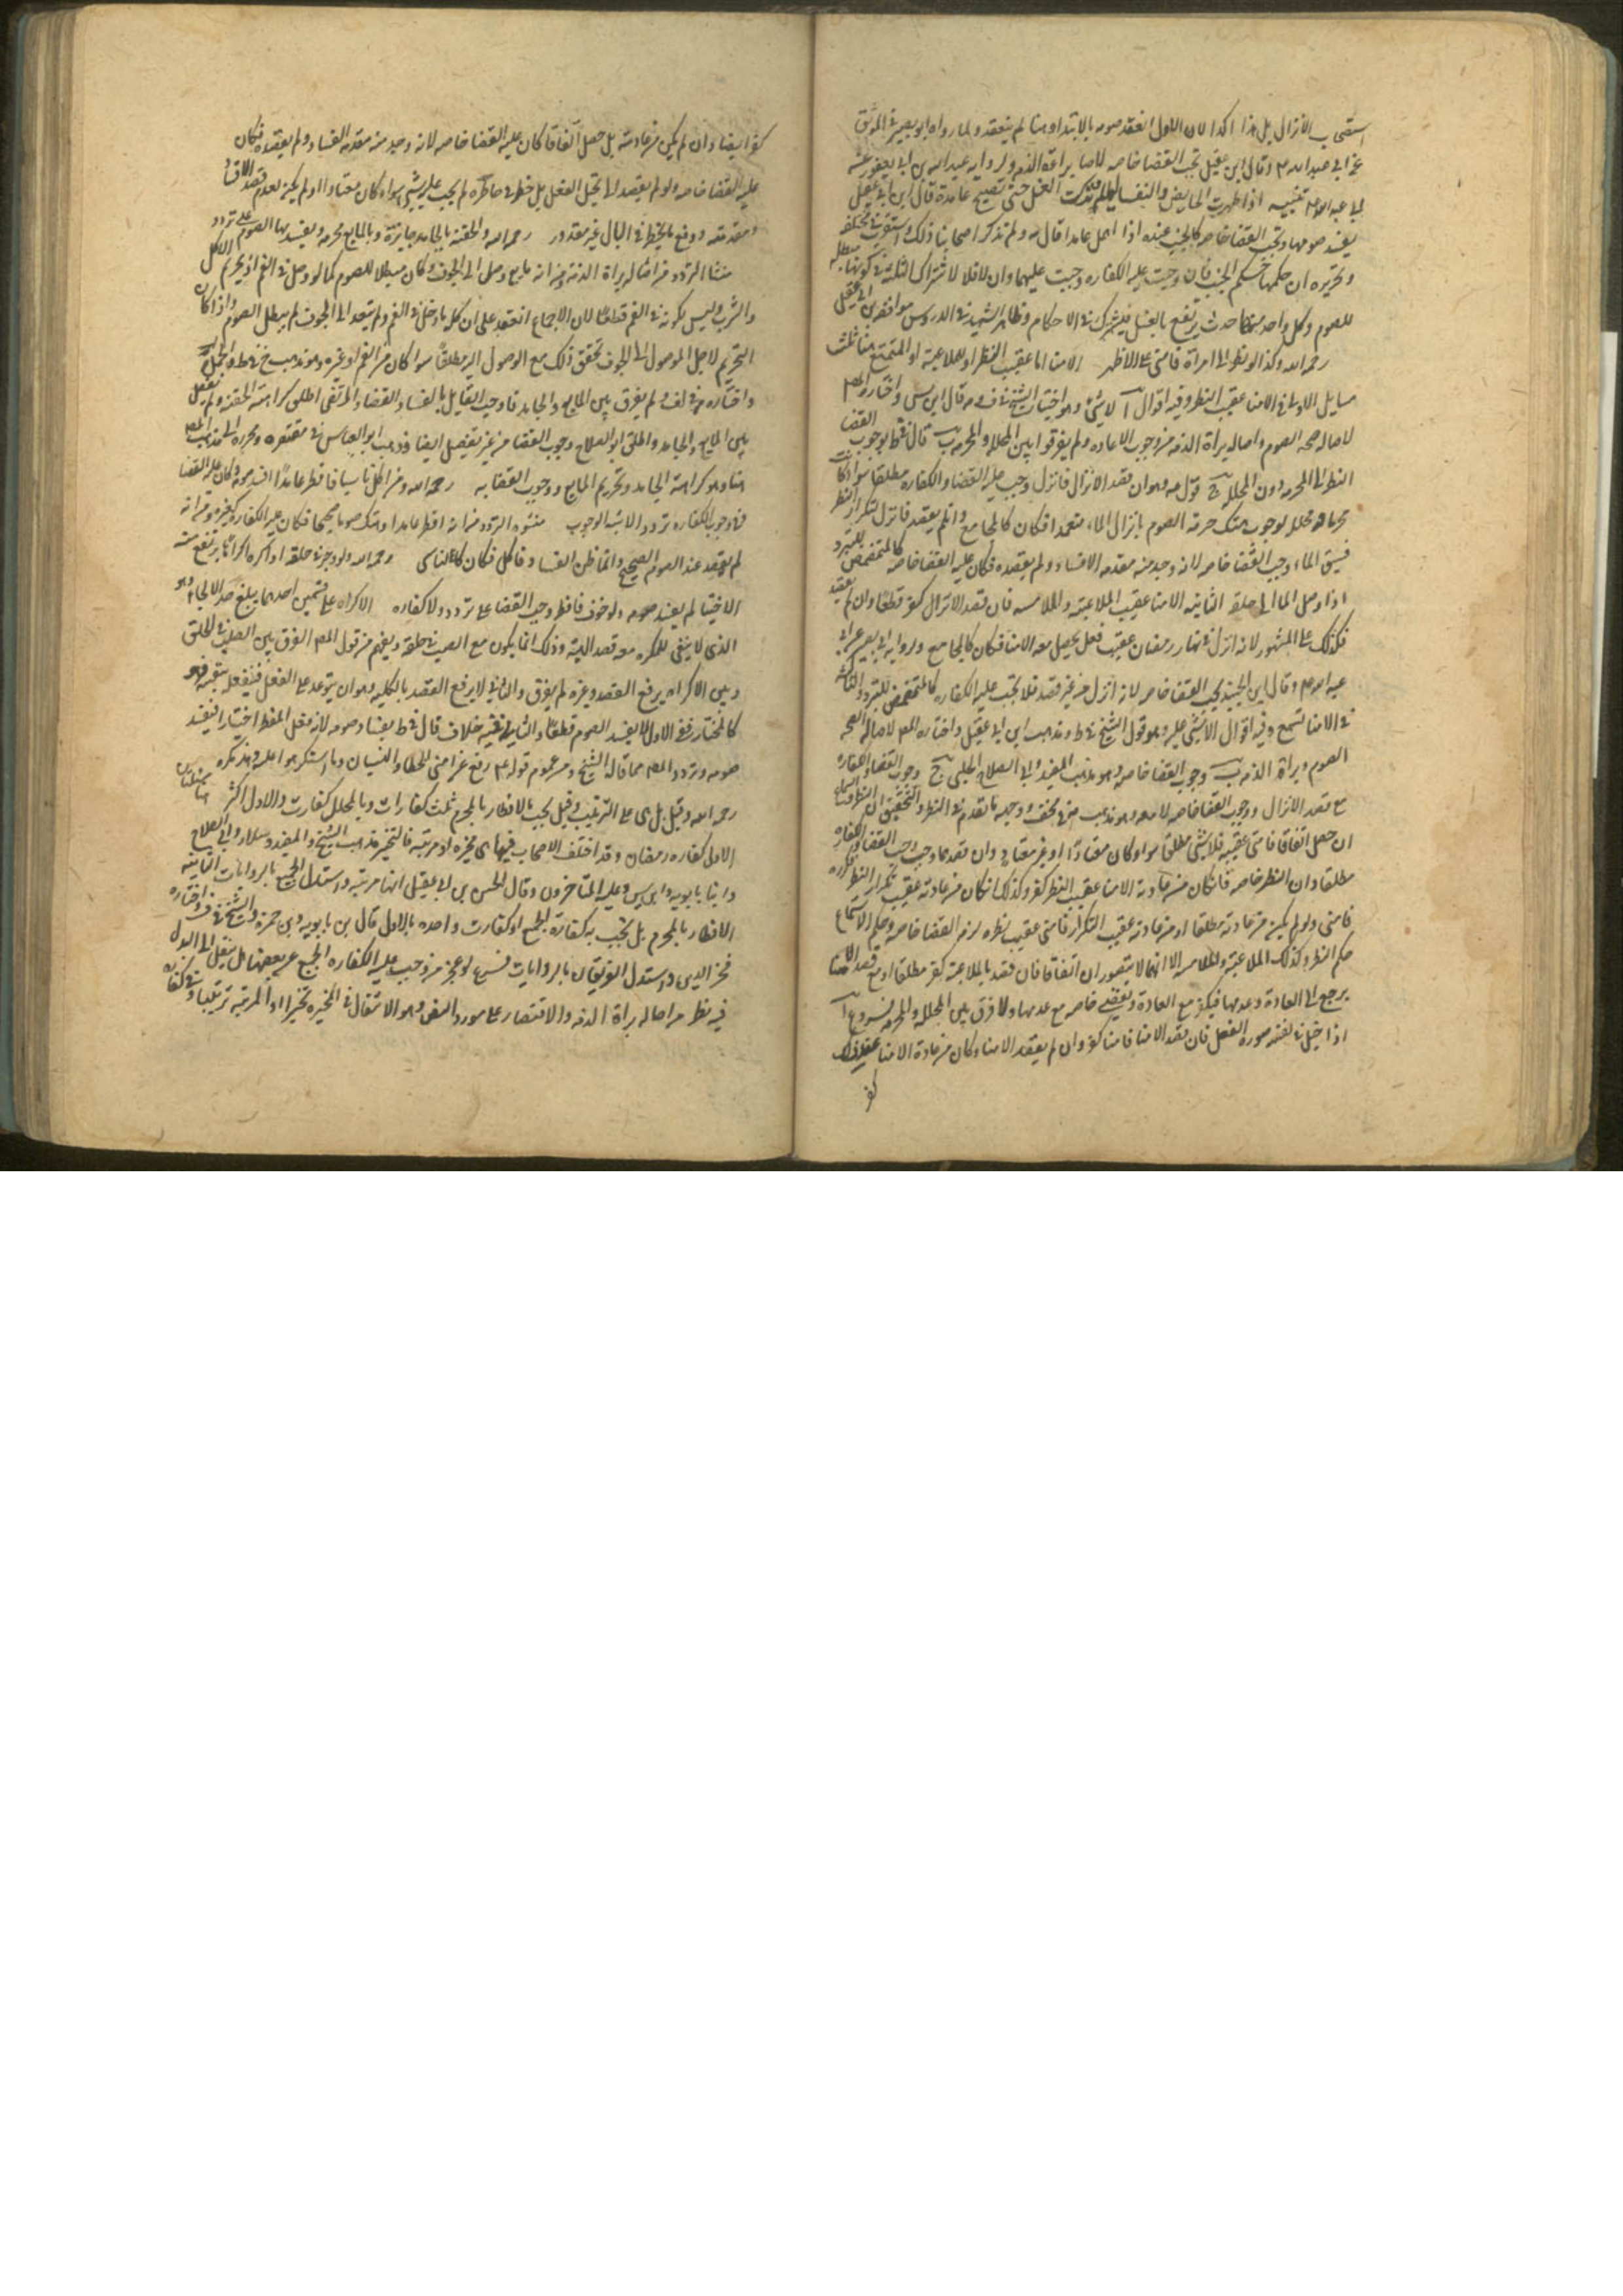 استقى ب الانزال بل هذا اكد لان الاول انعقد صومه بالابتداء وهنا لم ينعقد ولما رواه ابو بصير في الموثق
عن ابي عبد الله ع وقال ابن عقيل تجب القضا خاصه لاصاله براءة الذمه ولروايه عبد الله بن ابي يعفور عنه
تنبيه اذا طهرت الحايض والنفسا ليلا فتركت الغسل حتى تصبح عامدة قال ابن ابي عقيل
يفسد صومها وتجب القضا خاصه كالجنب عنده اذا اهمل عامدا قال ولم تذكر اصحابنا ذلك
وتحريره ان حكمها حكم الجنب فان وجبت عليه الكفاره وجبت عليهما وان لا فلا لاشتراك الثلثة في كونها مبطله
للصوم وكل واحد منها حدث يرتفع بالغسل فيشترك في الاحكام وظاهر الشهيد في الدروس موافقه ابن ابي عقيل
رحمه الله وكذا لو نظر الى امراة فامنى على الاظهر الامنا اما عقيب النظر او الملاعبه او التسمع هنا ثلث
مسايل الاولى في الامنا عقيب النظر وفيه اقوال آ لا شئ وهو اختيار الشيخ في ف وبه قال ابن ادريس واختاره المص
لاصاله صحه الصوم واصاله براءة الذمه من وجوب الاعاده ولم يفرقوا بين المحلله والمحرمه ب قال في ط بوجوب القضا
النظر الى المحرمه دون المحلله ج فان قصد الانزال فانزل وجب عليه القضا والكفاره مطلقا سواء كانت
محرمه او محلله لوجوب هتك حرمه الصوم بانزال الماء متعمدا فكان كالمجامع وان لم يقصد فانزل لتكرار النظر
فسبق الماء وجب القضا خاصه لانه وجد منه مقدمه الافساد ولم يقصده فكان عليه القضا خاصه كالمتمضمض للتبرد
اذا وصل الماء الى حلقه الثانيه الامنا عقيب الملاعبه والملامسه فان قصد الانزال كفر قطعا وان لم يقصد
فكذلك على المشهور لانه انزل في نهار رمضان عقيب فعل يحصل معه الامنا فكان كالمجامع ولروايه ابي بصير عن ابي
عبد الله ع وقال ابن الجنيد يجب القضا خاصه لانه انزل من غير قصد فلا تجب عليه الكفاره كالمتمضمض للتبرد الثالثه
في الامنا بتسمع وفيه اقوال الا شئ عليه وهو قول الشيخ في ط ومذهب ابن ابي عقيل واختاره المص لاصاله صحه
الصوم وبراءة الذمه ب وجوب القضا خاصه وهو مذهب المفيد وابي الصلاح الحلبي ج وجوب القضا والكفاره
مع قصد الانزال ووجوب القضا خاصه لا معه وهو مذهب العلامه في المختلف ووجهه ما تقدم في النظر والتحقيق ان النظر والتسمع
ان حصل اتفاقا فامنى عقيبه فلا شئ مطلقا سواء كان معتادا او غير معتاد وان قصدهما وجب القضا والكفاره
مطلقا وان النظر خاصه فان كان من عادته الامنا عقيب النظر كفر وكذلك ان كان من عادته عقيب تكرار النظر فكرره
فامنى ولو لم يكن من عادته مطلقا او من عادته عقيب التكرار فامنى عقيب نظره لزم القضا خاصه وحكم الاستماع
حكم النظر وكذلك الملاعبه والملامسه الا انهما لا يتصوران اتفاقا فان قصد بالملاعبه كفر مطلقا او مع قصد الامنا
يرجع الى العادة وعدمها فيكفر مع العادة ويقضي خاصه مع عدمها ولا فرق بين المحلله والمحرمه فروع آ
اذا خيل في نفسه صورة الفعل فان قصد الامنا فامنا كفر وان لم يقصد الامنا وكان من عادة الامنا عقيب ذلك
كفر
كفر ايضا وان لم يكن من عادته بل حصل اتفاقا كان عليه القضا خاصه لانه وجد منه مقدمه الفساد ولم يقصده فكان
عليه القضا خاصه ولو لم يقصد الى تخيل الفعل بل خطر في خاطره لم يجب عليه شئ سواء كان معتادا او لم يكن لعدم قصد الافساد
ومقدمته ودفع ما يخطر في البال غير مقدور رحمه الله والحقنة بالجامد جايزة وبالمايع محرمه ويفسد بها الصوم على تردد
منشا التردد من اصاله براءة الذمه ومن انه مايع وصل الى الجوف فكان مبطلا للصوم كما لو وصل من الفم اذ تحريم الاكل
والشرب وليس لكونه في الفم قطعا لان الاجماع انعقد على ان كل ما دخل في الفم ولم يتعد الى الجوف لم يبطل الصوم واذا كان
التحريم لاجل الموصول الى الجوف تحقق ذلك مع الوصول اليه مطلقا سواء كان من الفم او غيره وهو مذهب الشيخ في ط والجمل
واختاره في لف ولم يفرق بين المايع والجامد فاوجب القايل بالفساد القضاء والمرتضى اطلق كراهته الحقنه ولم يفصل
بين المايع والجامد واطلق ابو الصلاح وجوب القضا من غير تفصيل ايضا وذهب ابو العباس في مقتصره ومحرره الى مذهب المص
هنا وهو كراهة الجامد وتحريم المايع ووجوب القضا به رحمه الله ومن اكل ناسيا فافطر عامدا افسد صومه وكان عليه القضا
في وجوب الكفاره تردد الاشبه الوجوب منشوه التردد من انه افطر عامدا وهتك صوما صحيحا فكان عليه الكفاره كغيره ومن انه
لم يقصد عند الصوم الصحيح وانما ظن الفساد فاكل فكان كالناسى رحمه الله ولو وجر في حلقه او اكره اكراها يرتفع منه
الاختيار لم يفسد صومه ولو خوف فافطر وجب القضا على تردد ولا كفاره الاكراه على قسمين احدهما يبلغ حد الالجاء وهو
الذى لا يبقى للمكره معه قصد البتة وذلك انما يكون مع الصب في حلقه ويفهم من قول المص الفرق بين الصب في الحلق
وبين الاكراه يرفع القصد وغيره لم يفرق والثاني لا يرفع القصد بالكليه وهو ان يتوعد على الفعل فيفعل بنفسه فهو
كالمختار ففي الاول لا يفسد الصوم قطعا والثاني فيه خلاف قال في ط بفساد صومه لانه فعل المفطر اختيارا فيفسد
صومه وتردد المص مما قاله الشيخ ومن عموم قوله ع رفع عن امتى الخطا والنسيان وما استكرهوا عليه وهذا مكره
رحمه الله وقيل بل هى على الترتيب وقيل يجب بالافطار بالمحرم ثلث كفارات وبالمحلل كفارت والاول اكثر هنا مسئلتان
الاول كفاره رمضان وقد اختلف الاصحاب فيها هى مخيره او مرتبه فالتخيير مذهب الشيخ والمفيد وسلار وابى الصلاح
وابنا بابويه وابن ادريس وعليه المتاخرون وقال الحسن بن ابي عقيل انها مرتبه واستدل الجميع بالروايات الثانيه
الافطار بالمحرم هل تجب به كفارة الجمع او كفارت واحده بالاول قال بن بابويه وبن حمزه والشيخ واختاره
فخر الدين واستدل الفريقان بالروايات فرع لو عجز من وجب عليه الكفاره الجمع عن بعضها هل ينتقل الى البدل
فيه نظر من اصاله براءة الذمه والاقتصار على مورد النص وهو الانتقال في المخيره تخييرا او المرتبه ترتيبا وفي كفاره